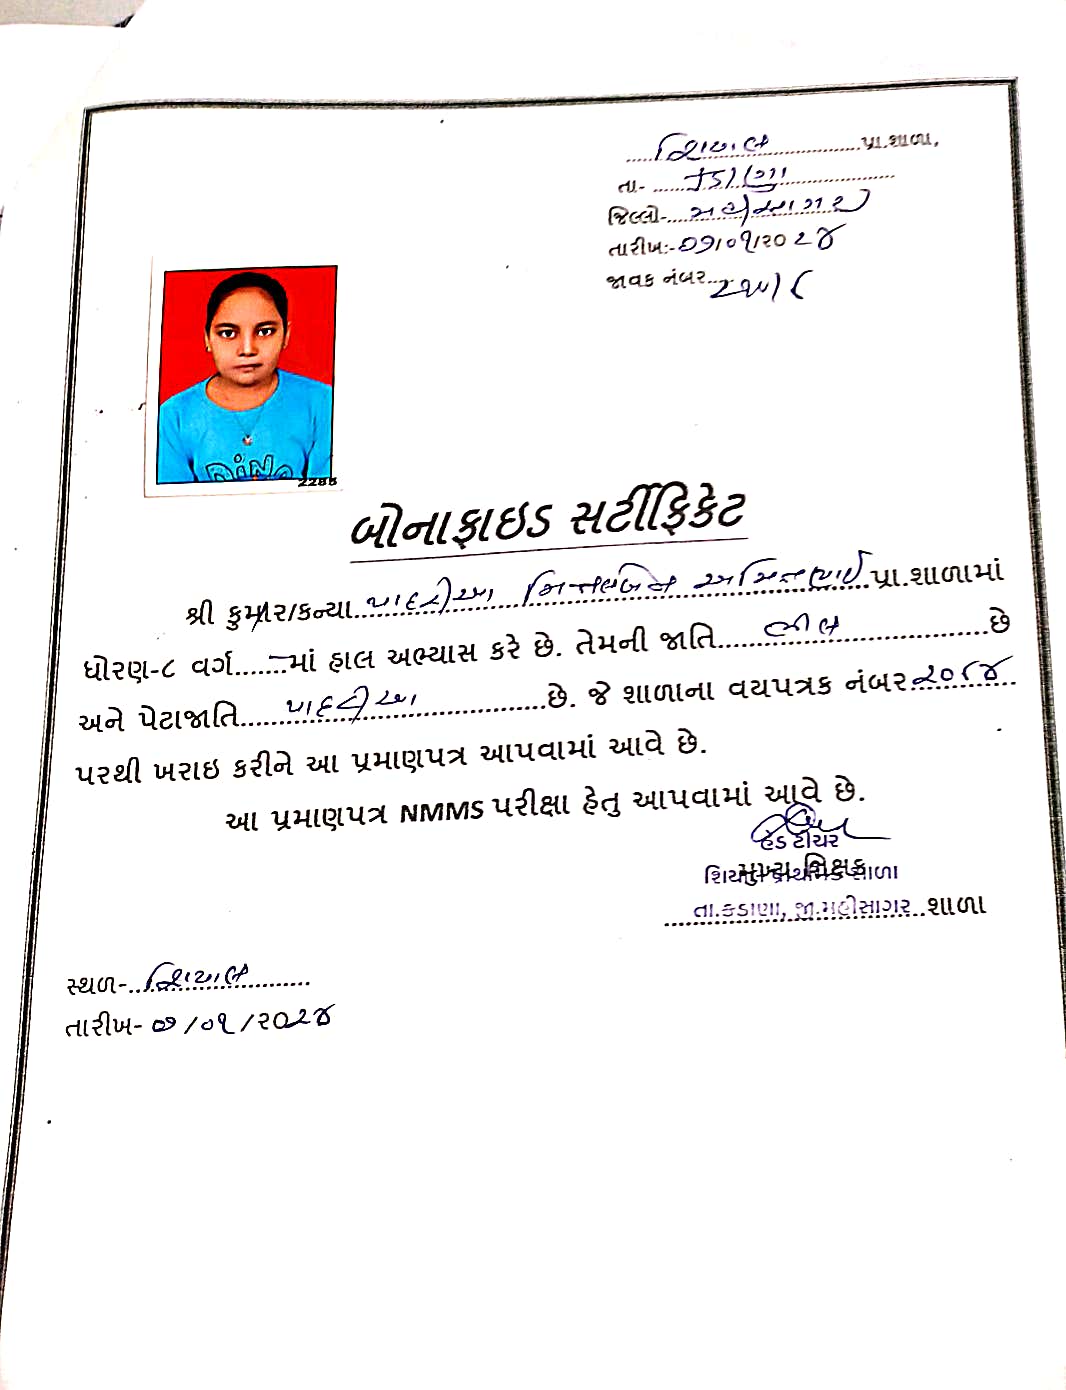 શિયાલ પ્રા.શાળા,
તા- કડાણા
જિલ્લો- મહીસાગર
તારીખ:- ૦૭/૦૧/૨૦૨૪
જાવક નંબર..
DINO
2285
બોનાફાઇડ સર્ટીફિકેટ
શ્રી કુમાર/કન્યા પાદરીયા મિત્તલબેન પ્રા.શાળામાં
ધોરણ-૮ વર્ગ.......–માં હાલ અભ્યાસ કરે છે. તેમની જાતિ ભીલ છે
અને પેટાજાતિ પાદરીયા છે. જે શાળાના વયપત્રક નંબર ૨૦૮૪
પરથી ખરાઇ કરીને આ પ્રમાણપત્ર આપવામાં આવે છે.
આ પ્રમાણપત્ર NMMS પરીક્ષા હેતુ આપવામાં આવે છે.
હેડ ટીચર
મુખ્ય શિક્ષક
શિયાલ પ્રાથમિક શાળા
તા.કડાણા, જી.મહીસાગર શાળા
સ્થળ- શિયાલ
તારીખ- ૦૭/૦૧/૨૦૨૪